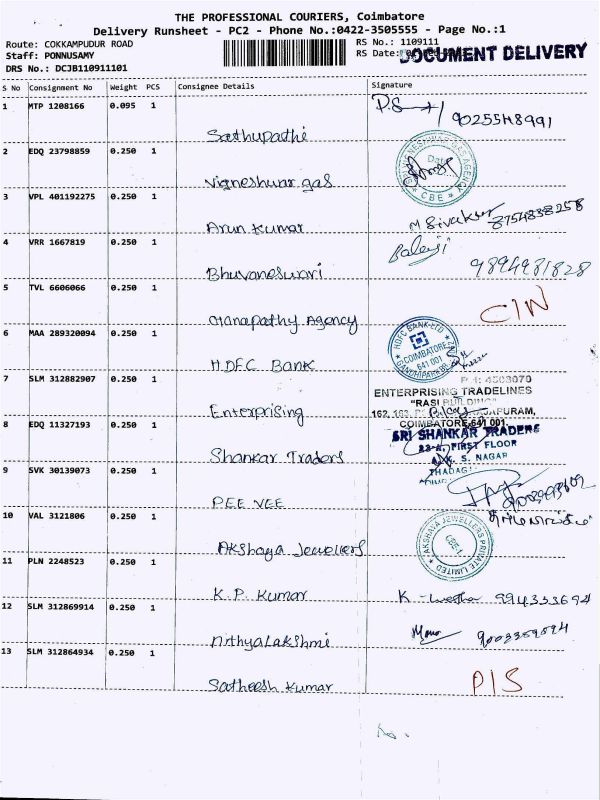 THE PROFESSIONAL COURIERS, Coimbatore
Delivery Runsheet - PC2 - Phone No.:0422-3505555 - Page No.:1
Route: COKKAMPUDUR ROAD
Staff: PONNUSAMY
DRS No.: DCJB110911101
RS No.: 1109111
RS Date:
DOCUMENT DELIVERY
S No Consignment No Weight PCS Consignee Details Signature
1 MTP 1208166 0.095 1
Sathupathi
9025548991
2 EDQ 23798859 0.250 1
Vigneshwar gas
CBE
3 VPL 401192275 0.250 1
Arun Kumar
M Sivakur 8754838258
4 VRR 1667819 0.250 1
Bhuvaneswari
Balaji
9894981828
5 TVL 6606066 0.250 1
Ganapathy Agency
C/N
6 MAA 289320094 0.250 1
HDFC Bank
HDFC BANK LTD
COIMBATORE
641 001
7 SLM 312882907 0.250 1
Enterprising
ENTERPRISING TRADELINES
"RASI BUILDING"
COIMBATORE-641 001.
8 EDQ 11327193 0.250 1
Shankar Traders
SRI SHANKAR TRADERS
FIRST FLOOR
S. NAGAR
9 SVK 30139073 0.250 1
PEE VEE
10 VAL 3121806 0.250 1
Akshaya Jewellers
AKSHAYA JEWELLERS PRIVATE LIMITED
11 PLN 2248523 0.250 1
K.P. Kumar
994353694
12 SLM 312869914 0.250 1
Nithyalakshmi
13 SLM 312864934 0.250 1
Satheesh Kumar
P/S